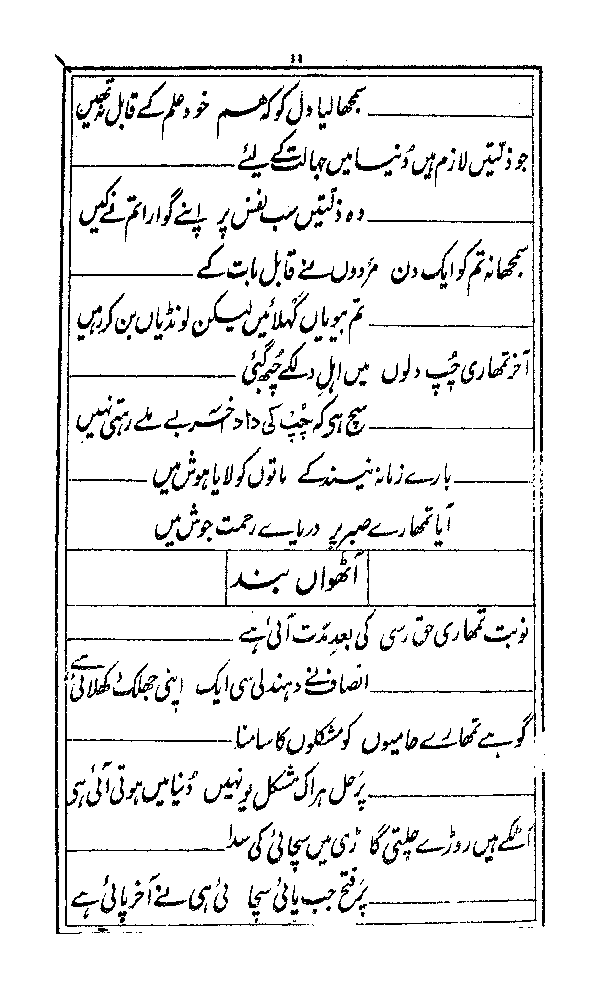 ۱۱
سمجھا لیا دل کو کہ ھم خود علم کے قابل نہ تھیں
جو ذلتیں لازم ہیں دُنیا میں جہالت کے لیئے
وہ ذلتیں سب نفس پر اپنے گوارا تم نے کیں
سمجھا نہ تم کو ایک دن مَردوں نے قابل بات کے
تم بیویاں کہلائیں لیکن لونڈیاں بن کر رہیں
آخر تمھاری چُپ دلوں میں اہلِ دل کے چُبھ گئی
سچ ہی کہ چُپ کی داد آخر بے ملے رہتی نہیں
بارے زمانہ نیند کے ماتوں کو لایا ہوش میں
آیا تمھارے صبر پر دریاے رحمت جوش میں
آٹھواں بند
نوبت تمھاری حق رسی کی بعد مدت آئی ہے
انصاف نے دھندلی سی ایک اپنی جھلک دکھلائی ہے
گو ہے تمھارے حامیوں کو مشکلوں کا سامنا
پَر حل ہر اک مشکل یونہیں دُنیا میں ہوتی آئی ہی
اٹکے ہیں روڑے چلتی گاڑی میں سچائی کی سدا
پَر فتح جب پائی سچائی ہی نے آخر پائی ہے